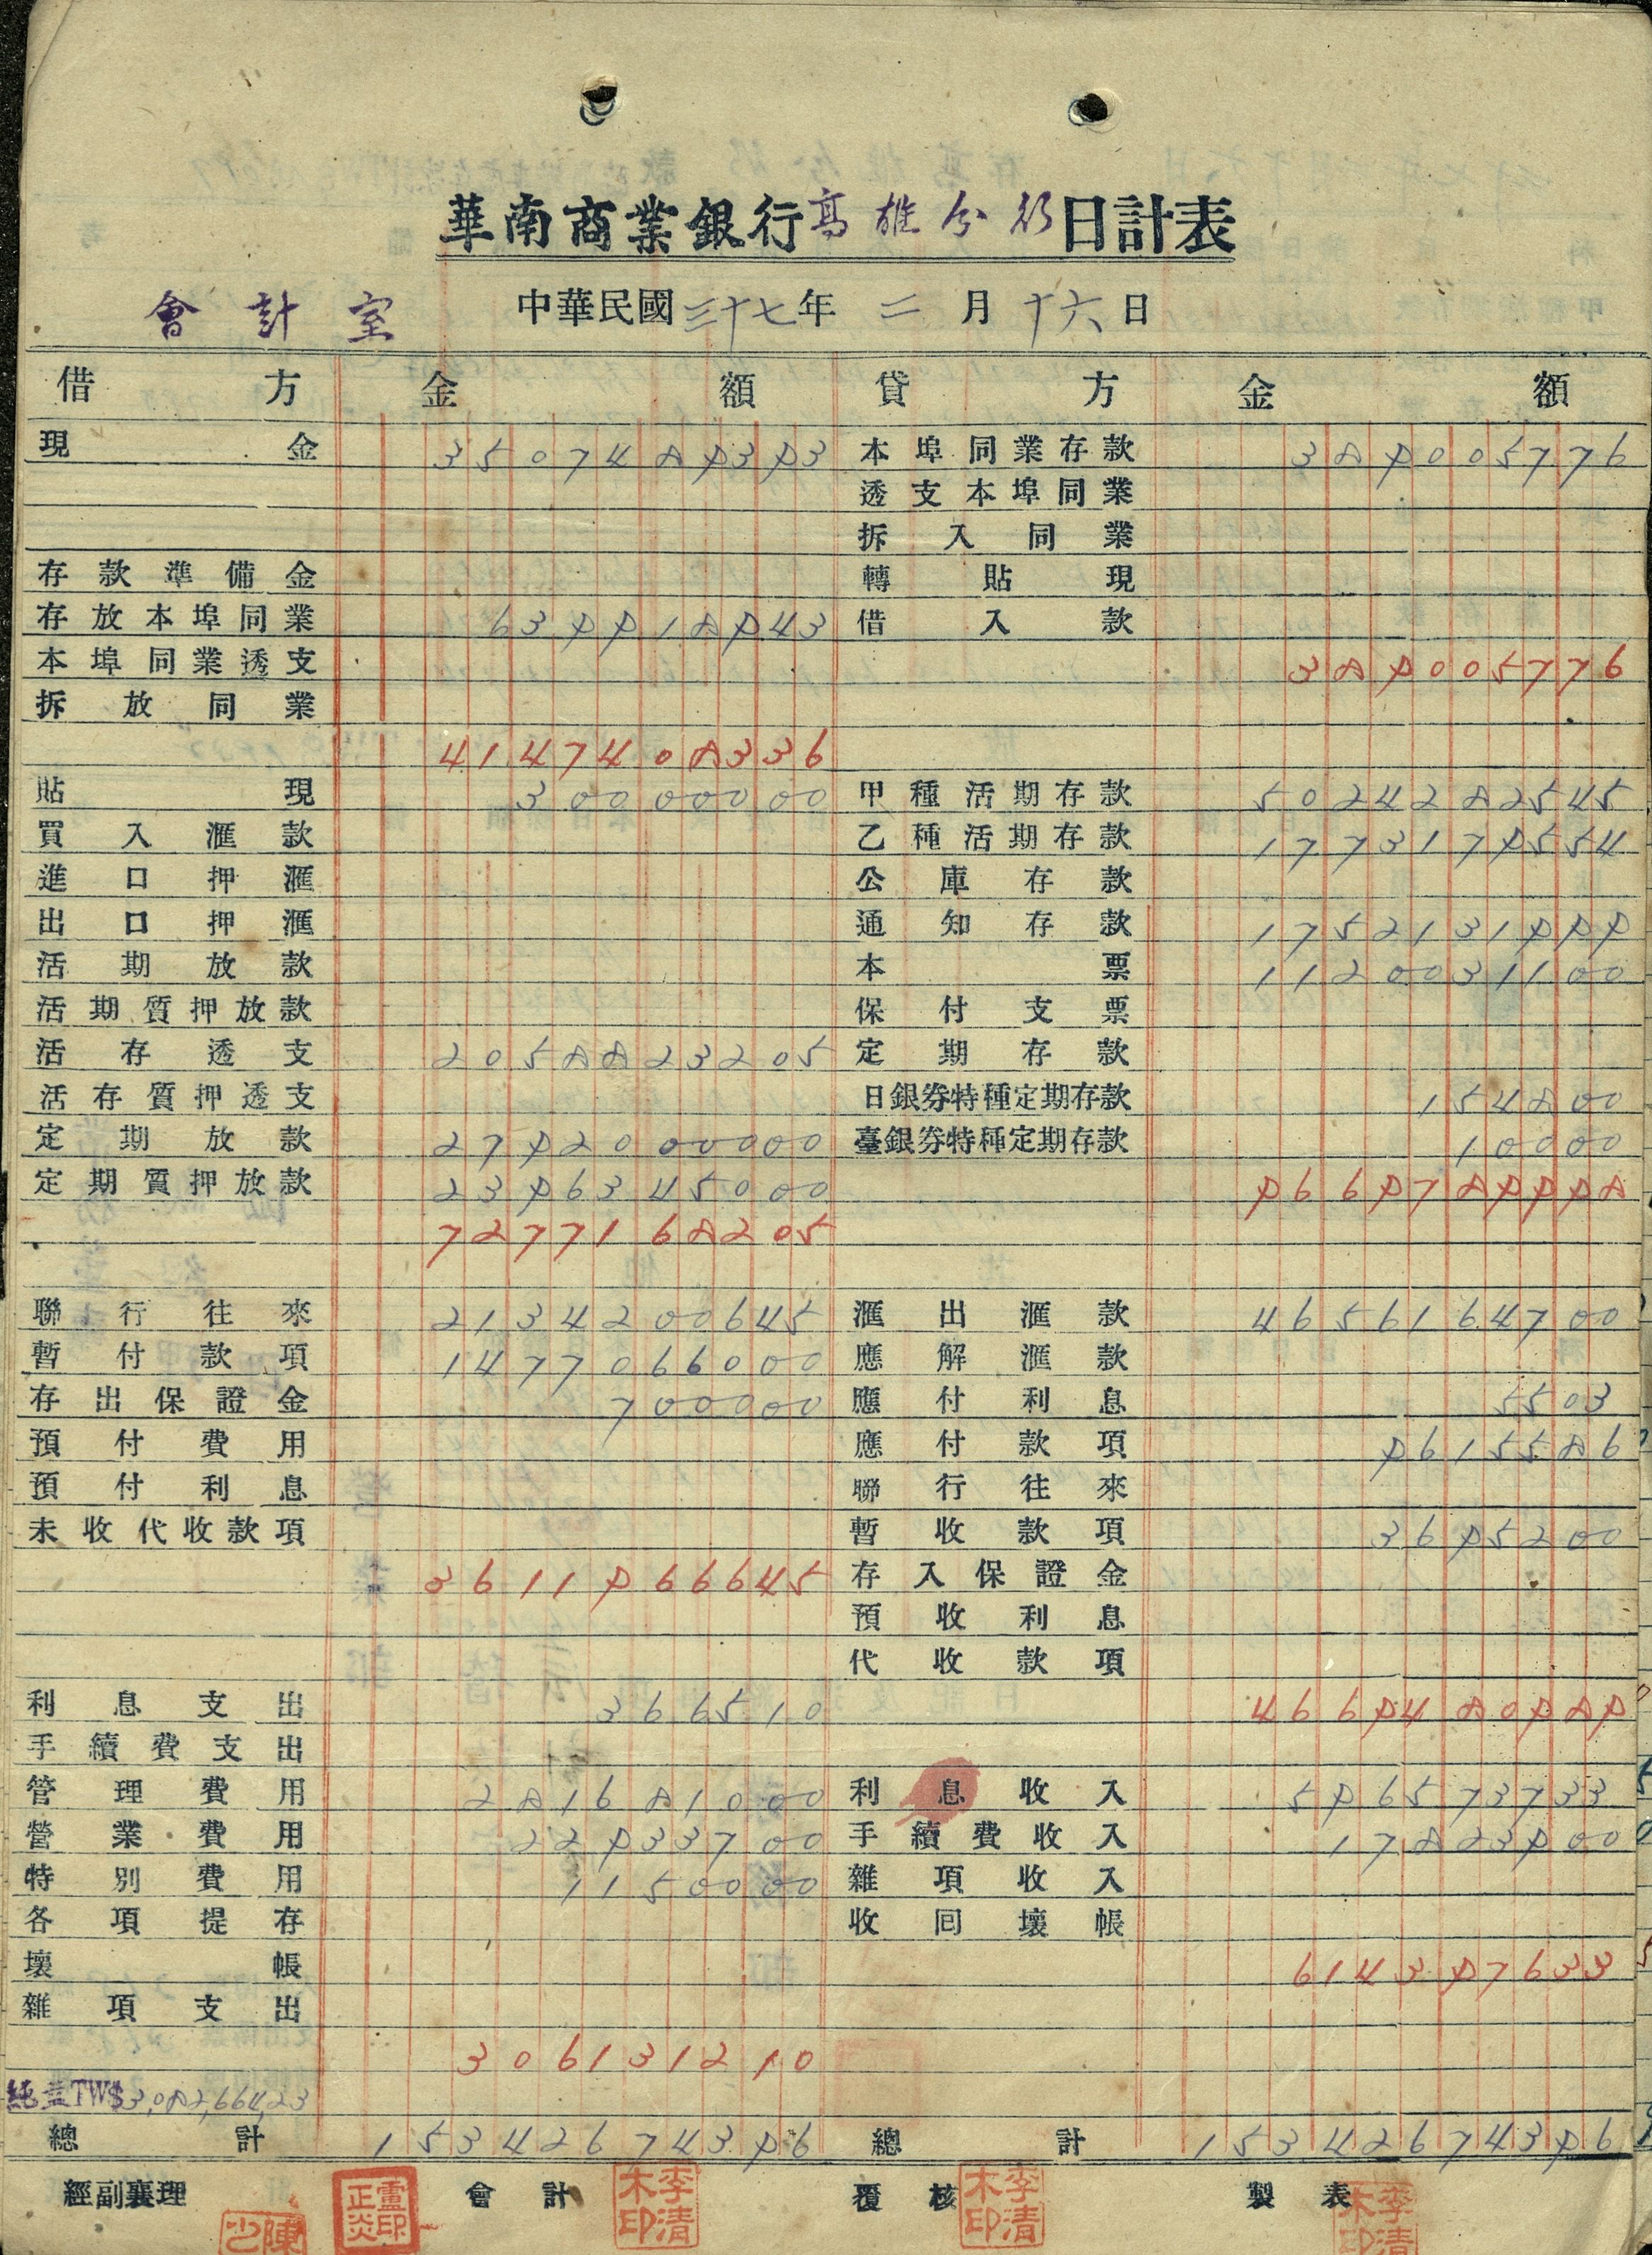 華南商業銀行高雄分行日計表
會計室 中華民國三十七年二月十六日
借方 金額 貸方 金額
現金 3507489393 本埠同業存款 389005776
透支本埠同業
拆入同業
存款準備金 轉貼現
存放本埠同業 639918943 借入款
本埠同業透支 389005776
拆放同業
4147408336
貼現 30000000 甲種活期存款 5024282545
買入滙款 乙種活期存款 1773179554
進口押滙 公庫存款
出口押滙 通知存款 1752131999
活期放款 本票 1120031100
活期質押放款 保付支票
活存透支 2058823205 定期存款
活存質押透支 日銀券特種定期存款 154800
定期放款 2792000000 臺銀券特種定期存款 10000
定期質押放款 2396345000 9669789998
7277168205
聯行往來 2134200645 滙出滙款 4656164700
暫付款項 1477066000 應解滙款
存出保證金 700000 應付利息 5503
預付費用 應付款項 9615586
預付利息 聯行往來
未收代收款項 暫收款項 3695200
3611966645 存入保證金
預收利息
代收款項
利息支出 366510 4669480989
手續費支出
管理費用 281681000 利息收入 596573733
營業費用 22933700 手續費收入 17823900
特別費用 1150000 雜項收入
各項提存 收回壞帳
壞帳 614397633
雜項支出
306131210
純益TW$3,082,664.23
總計 15342674396 總計 15342674396
經副襄理 會計 覆核 製表
盧正炎印 李清木印 李清木印 李清木印